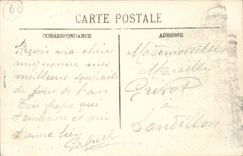 CARTE POSTALE
CORRESPONDANCE
ADRESSE
Reçois ma chère
mignonne mes
meilleurs souhaits
du jour de l'an
Ton papa qui
t'aime bien
Gabriel
Mademoiselle
Prévot
à
Sandillon